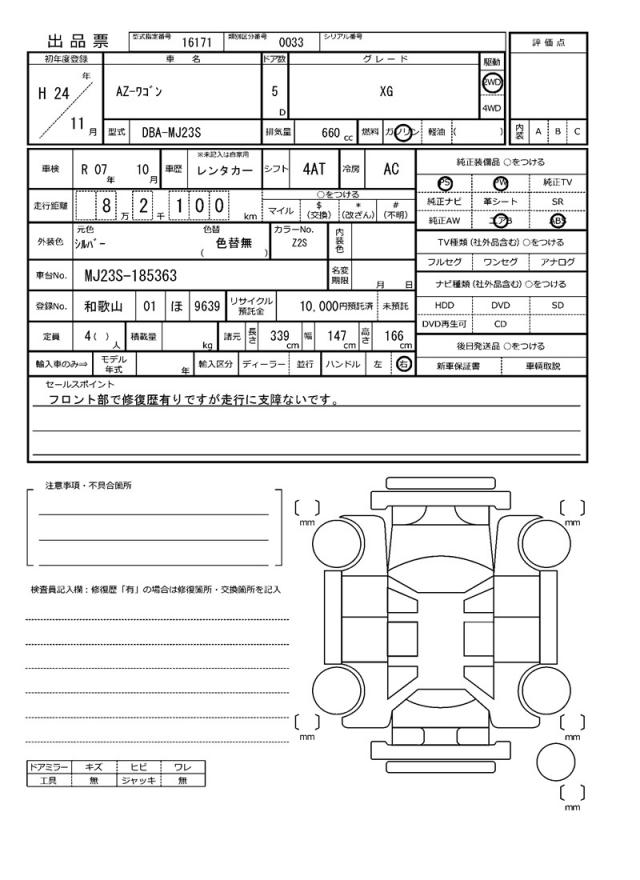 出品票 型式指定番号 16171 類別区分番号 0033 シリアル番号
評価点
初年度登録 車名 ドア数 グレード 駆動
H 24 年 11 月 AZ-ワゴン 5 D XG 2WD 4WD
型式 DBA-MJ23S 排気量 660 cc 燃料 ガソリン 軽油 ( ) 内装 A B C
車検 R 07 年 10 月 車歴 ※未記入は自家用 レンタカー シフト 4AT 冷房 AC
走行距離 8 万 2 千 1 0 0 km ○をつける マイル $ (交換) * (改ざん) # (不明)
外装色 元色 シルバー 色替 ( 色替無 ) カラーNo. Z2S 内装色
車台No. MJ23S-185363 名変期限 月 日
登録No. 和歌山 01 ほ 9639 リサイクル預託金 10,000円預託済 未預託
定員 4( ) 人 積載量 kg 諸元 長さ 339 cm 幅 147 cm 高さ 166 cm
輸入車のみ⇒ モデル年式 年 輸入区分 ディーラー 並行 ハンドル 左 右
純正装備品 ○をつける
PS PW 純正TV
純正ナビ 革シート SR
純正AW エアB ABS
TV種類(社外品含む)○をつける
フルセグ ワンセグ アナログ
ナビ種類(社外品含む)○をつける
HDD DVD SD
DVD再生可 CD
後日発送品 ○をつける
新車保証書 車輌取説
セールスポイント
フロント部で修復歴有りですが走行に支障ないです。
注意事項・不具合箇所
検査員記入欄:修復歴「有」の場合は修復箇所・交換箇所を記入
ドアミラー キズ ヒビ ワレ
工具 無 ジャッキ 無
[ ] mm
[ ] mm
[ ] mm
[ ] mm
[ ] mm